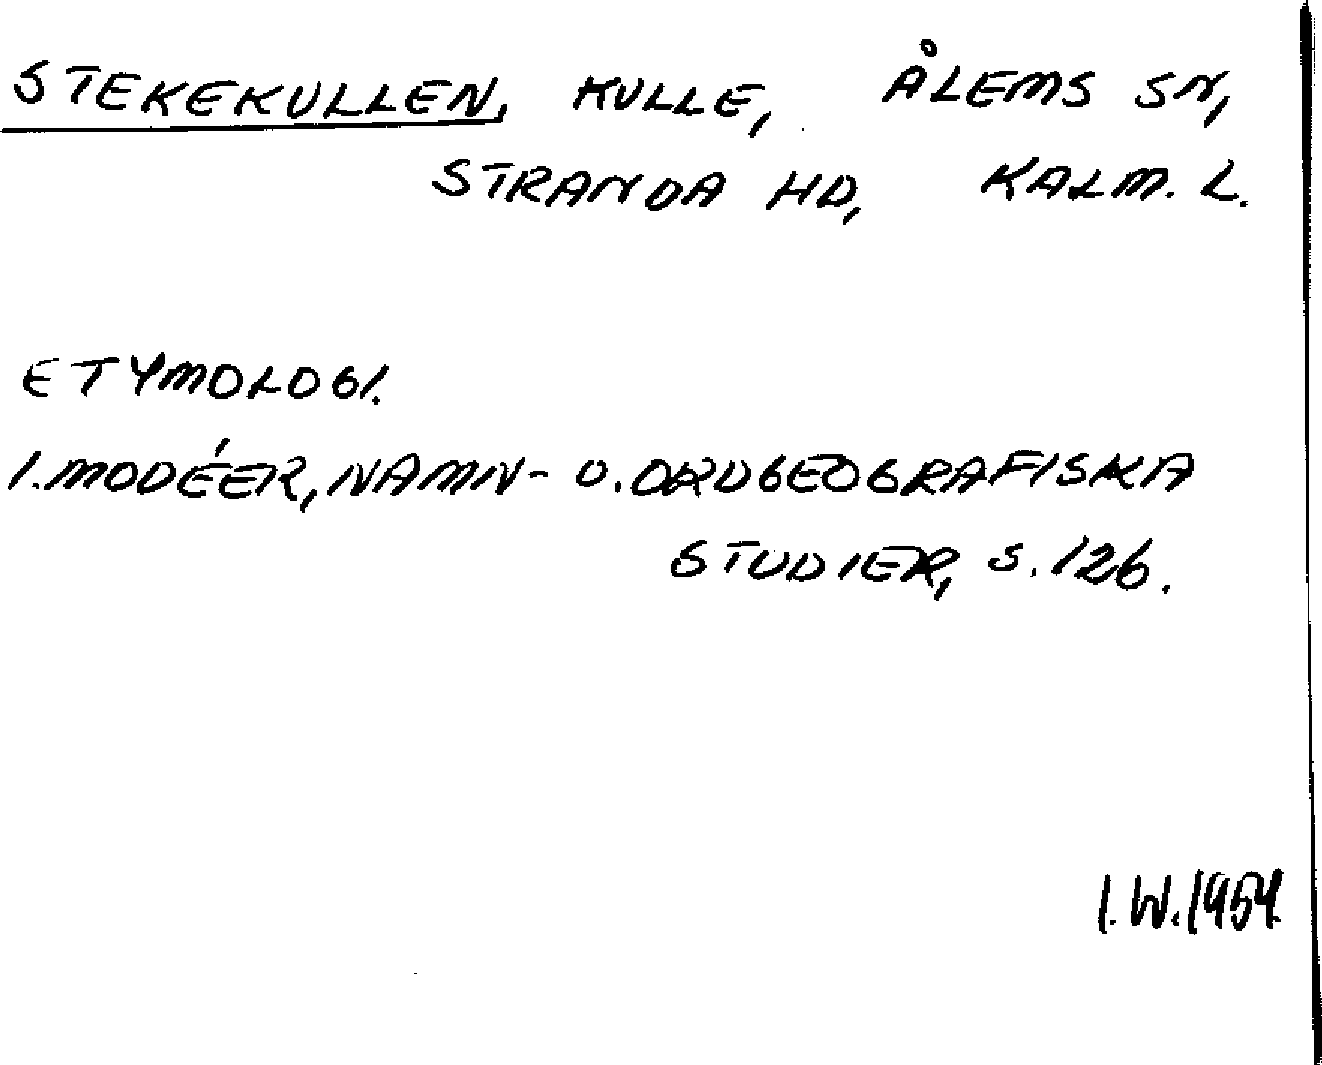 STEKEKULLEN, KULLE, ÅLEMS SN,
STRANDA HD, KALM. L.
ETYMOLOGI.
I. MODÉER, NAMN- O. ORDGEOGRAFISKA
STUDIER, S. 126.
I. W. 1954.